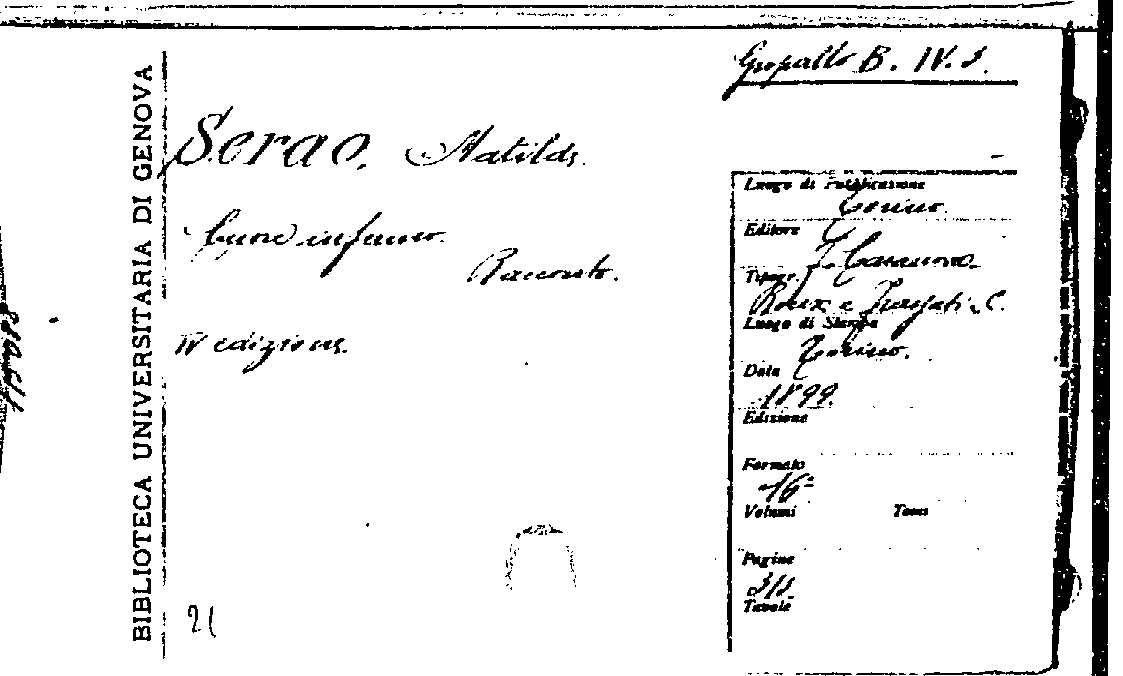 Gropallo B. IV. 3.
BIBLIOTECA UNIVERSITARIA DI GENOVA
Serao, Matilde.
Cuore infermo.
Racconto.
IV edizione.
Luogo di Pubblicazione
Torino.
Editore
F. Casanova
Tipogr.
Roux e Frassati e C.
Luogo di Stampa
Torino.
Data
1899.
Edizione
Formato
16º
Volumi Tomi
Pagine
Tavole
21